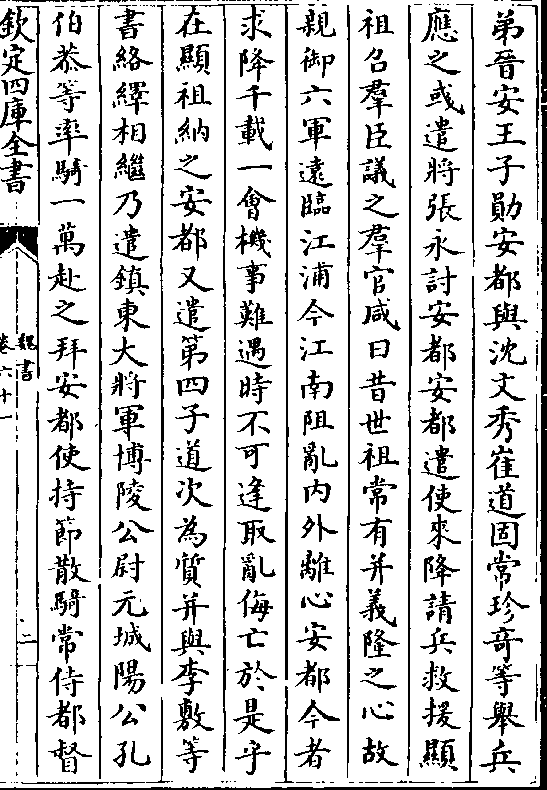 弟晉安王子勛安都與沈文秀崔道固常珍奇等舉兵
應之或遣將張永討安都安都遣使來降請兵救援顯
祖召羣臣議之羣官咸曰昔世祖常有并義隆之心故
親御六軍遠臨江浦今江南阻亂內外離心安都今者
求降千載一會機事難遇時不可逢取亂侮亡於是乎
在顯祖納之安都又遣第四子道次為質并與李敷等
書絡繹相繼乃遣鎮東大將軍博陵公尉元城陽公孔
伯恭等率騎一萬赴之拜安都使持節散騎常侍都督
欽定四庫全書
魏書
卷六十一
二